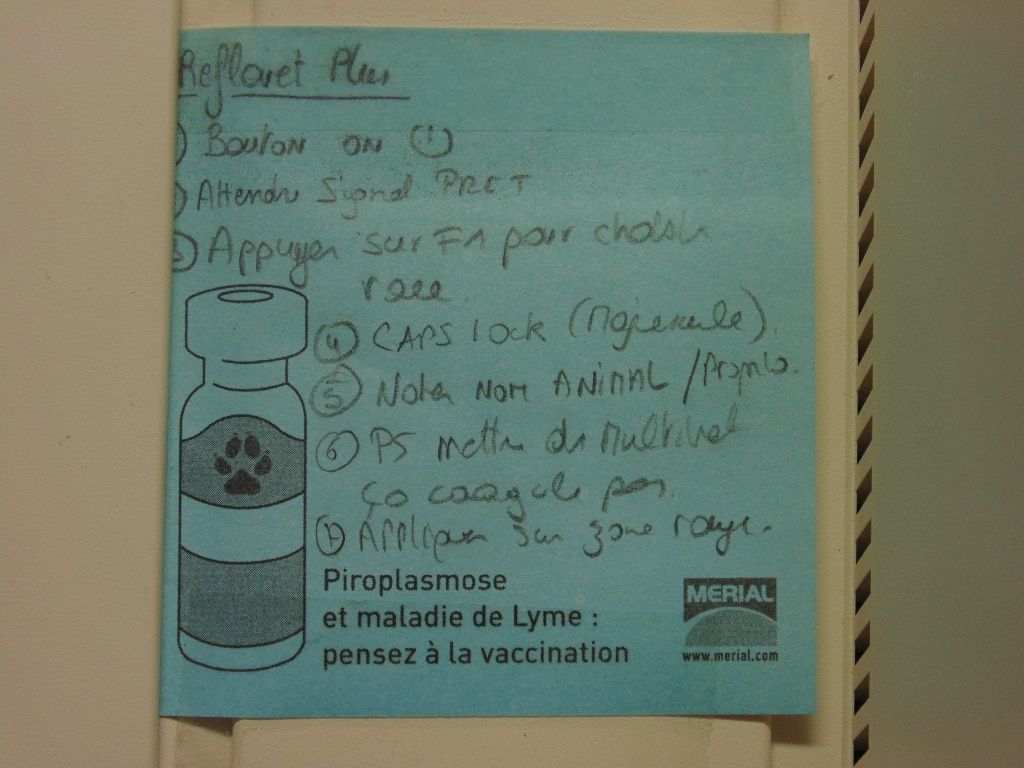 Reflovet Plus
) Bouton on
) Attendre Signal PRET
3) Appuyer sur F1 pour choisir
race
4 CAPS lock (Majuscule).
5 Noter NOM ANIMAL / Proprio.
6 PS mettre du Multistat
ça coagule pas.
7 Appliquer sur zone rouge.
Piroplasmose
et maladie de Lyme :
pensez à la vaccination
MERIAL
www.merial.com